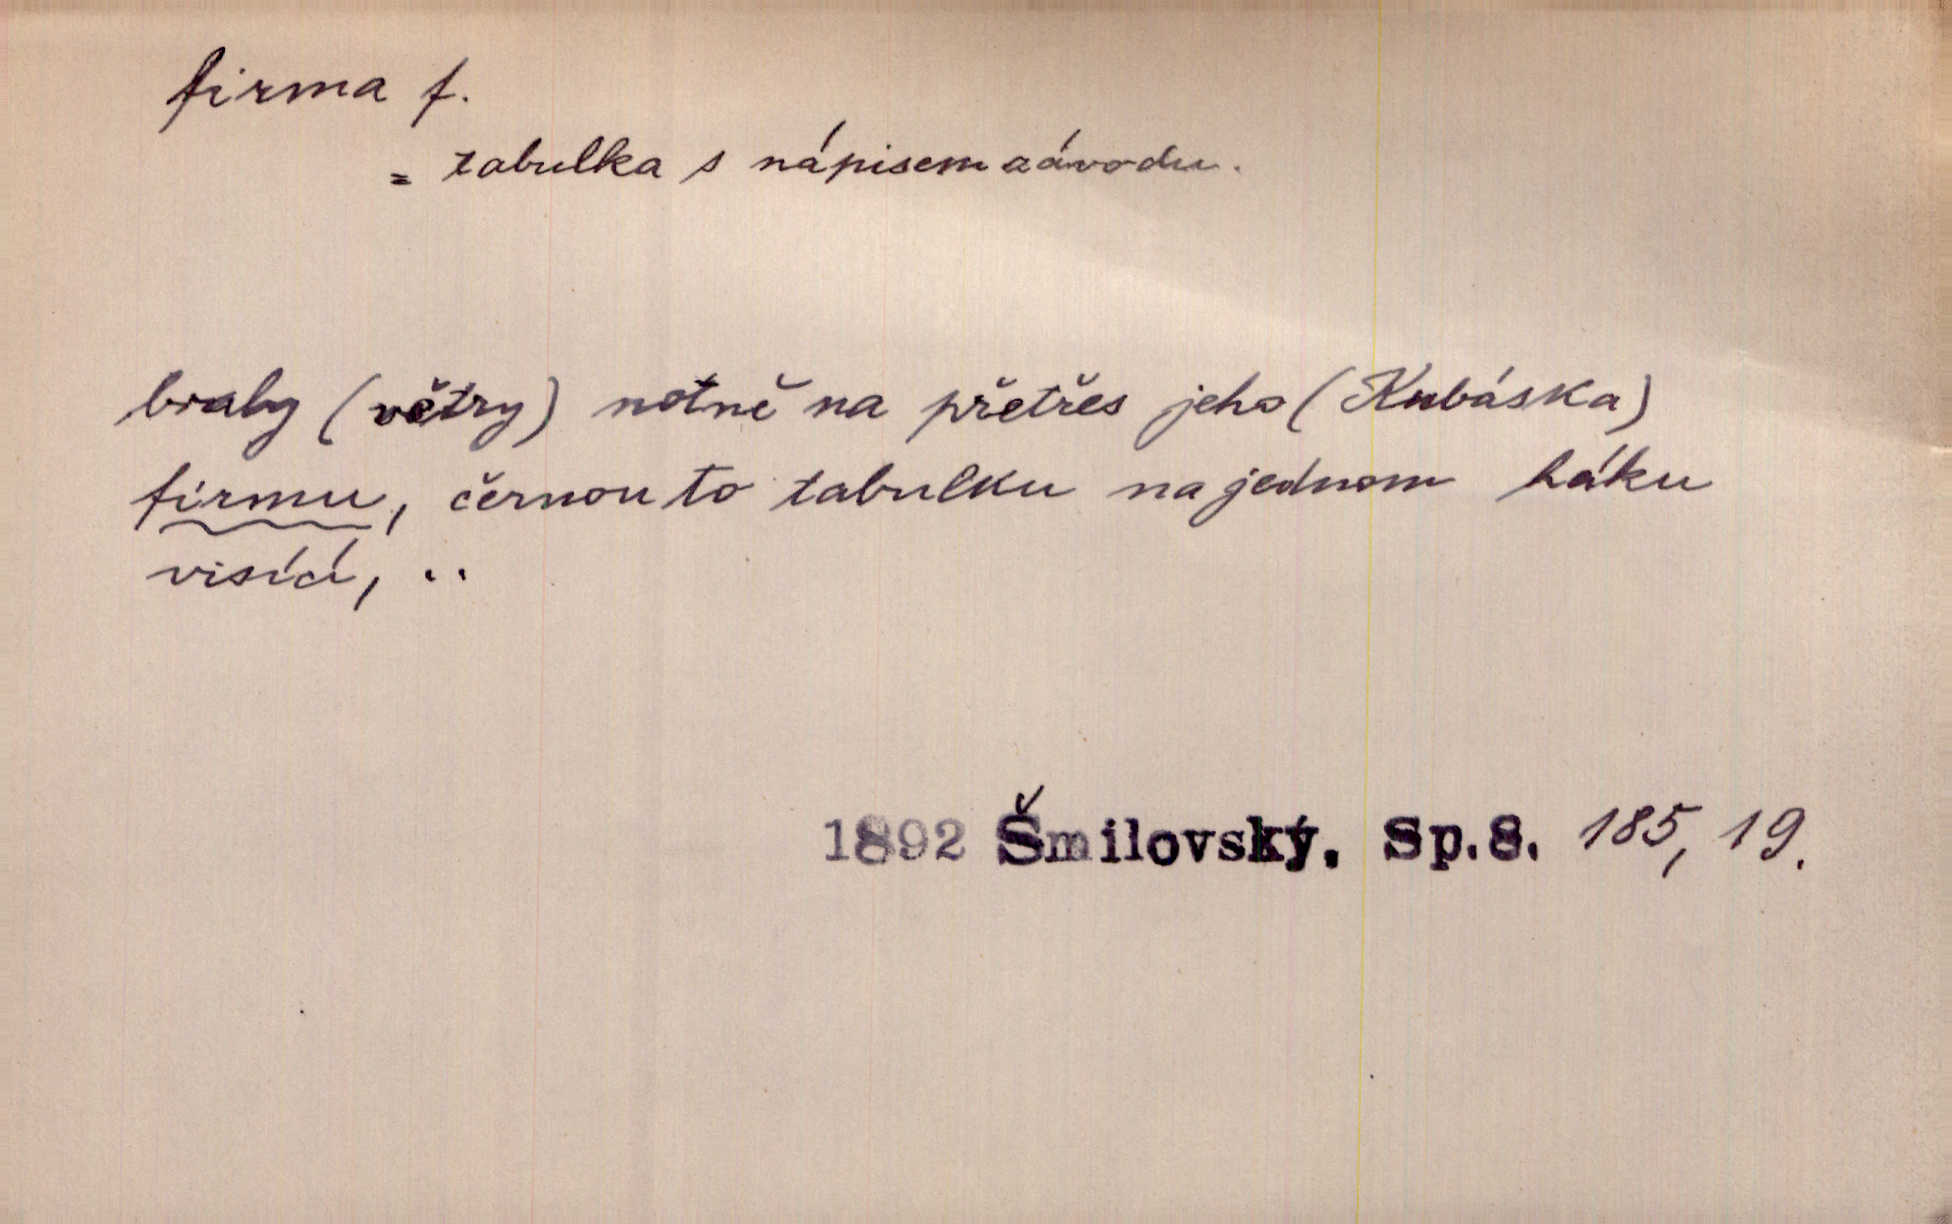 firma f.
= tabulka s nápisem závodu.
braly (větry) notně na přetřes jeho (Kubáska)
firmu, černou to tabulku na jednom háku
visící, ..
1892 Šmilovský. Sp.8. 185, 19.